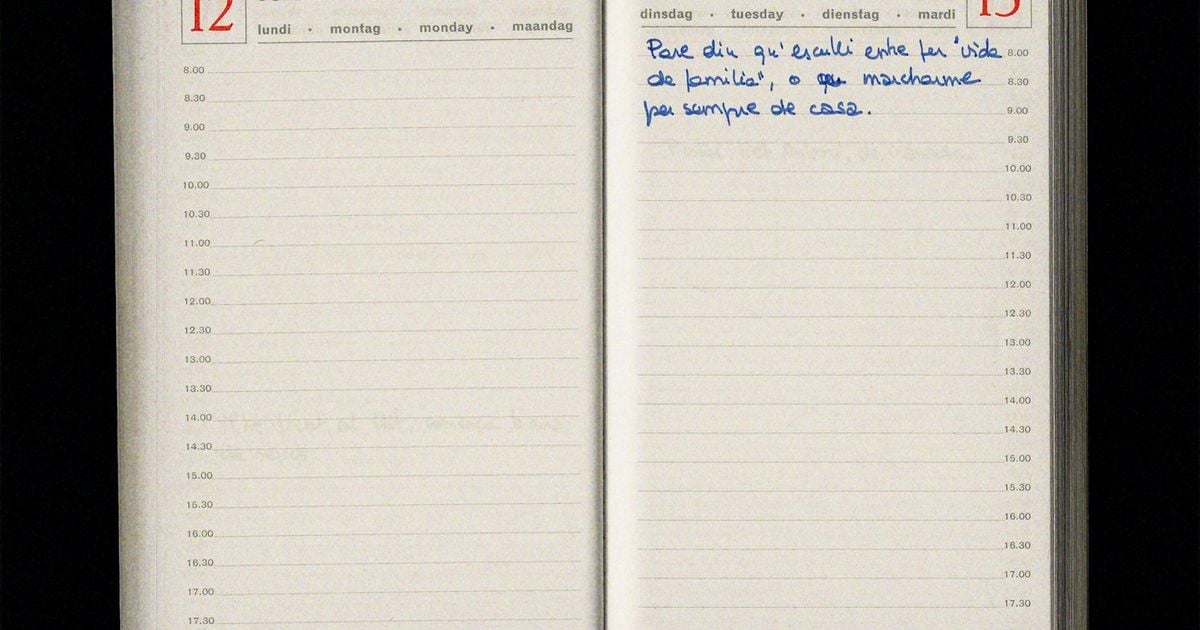 12
lundi · montag · monday · maandag
8.00
8.30
9.00
9.30
10.00
10.30
11.00
11.30
12.00
12.30
13.00
13.30
14.00
14.30
15.00
15.30
16.00
16.30
17.00
17.30
dinsdag · tuesday · dienstag · mardi
13
Pare diu qu'esculli entre fer "vida
de familia", o marcharme
per sempre de casa.
8.00
8.30
9.00
9.30
10.00
10.30
11.00
11.30
12.00
12.30
13.00
13.30
14.00
14.30
15.00
15.30
16.00
16.30
17.00
17.30